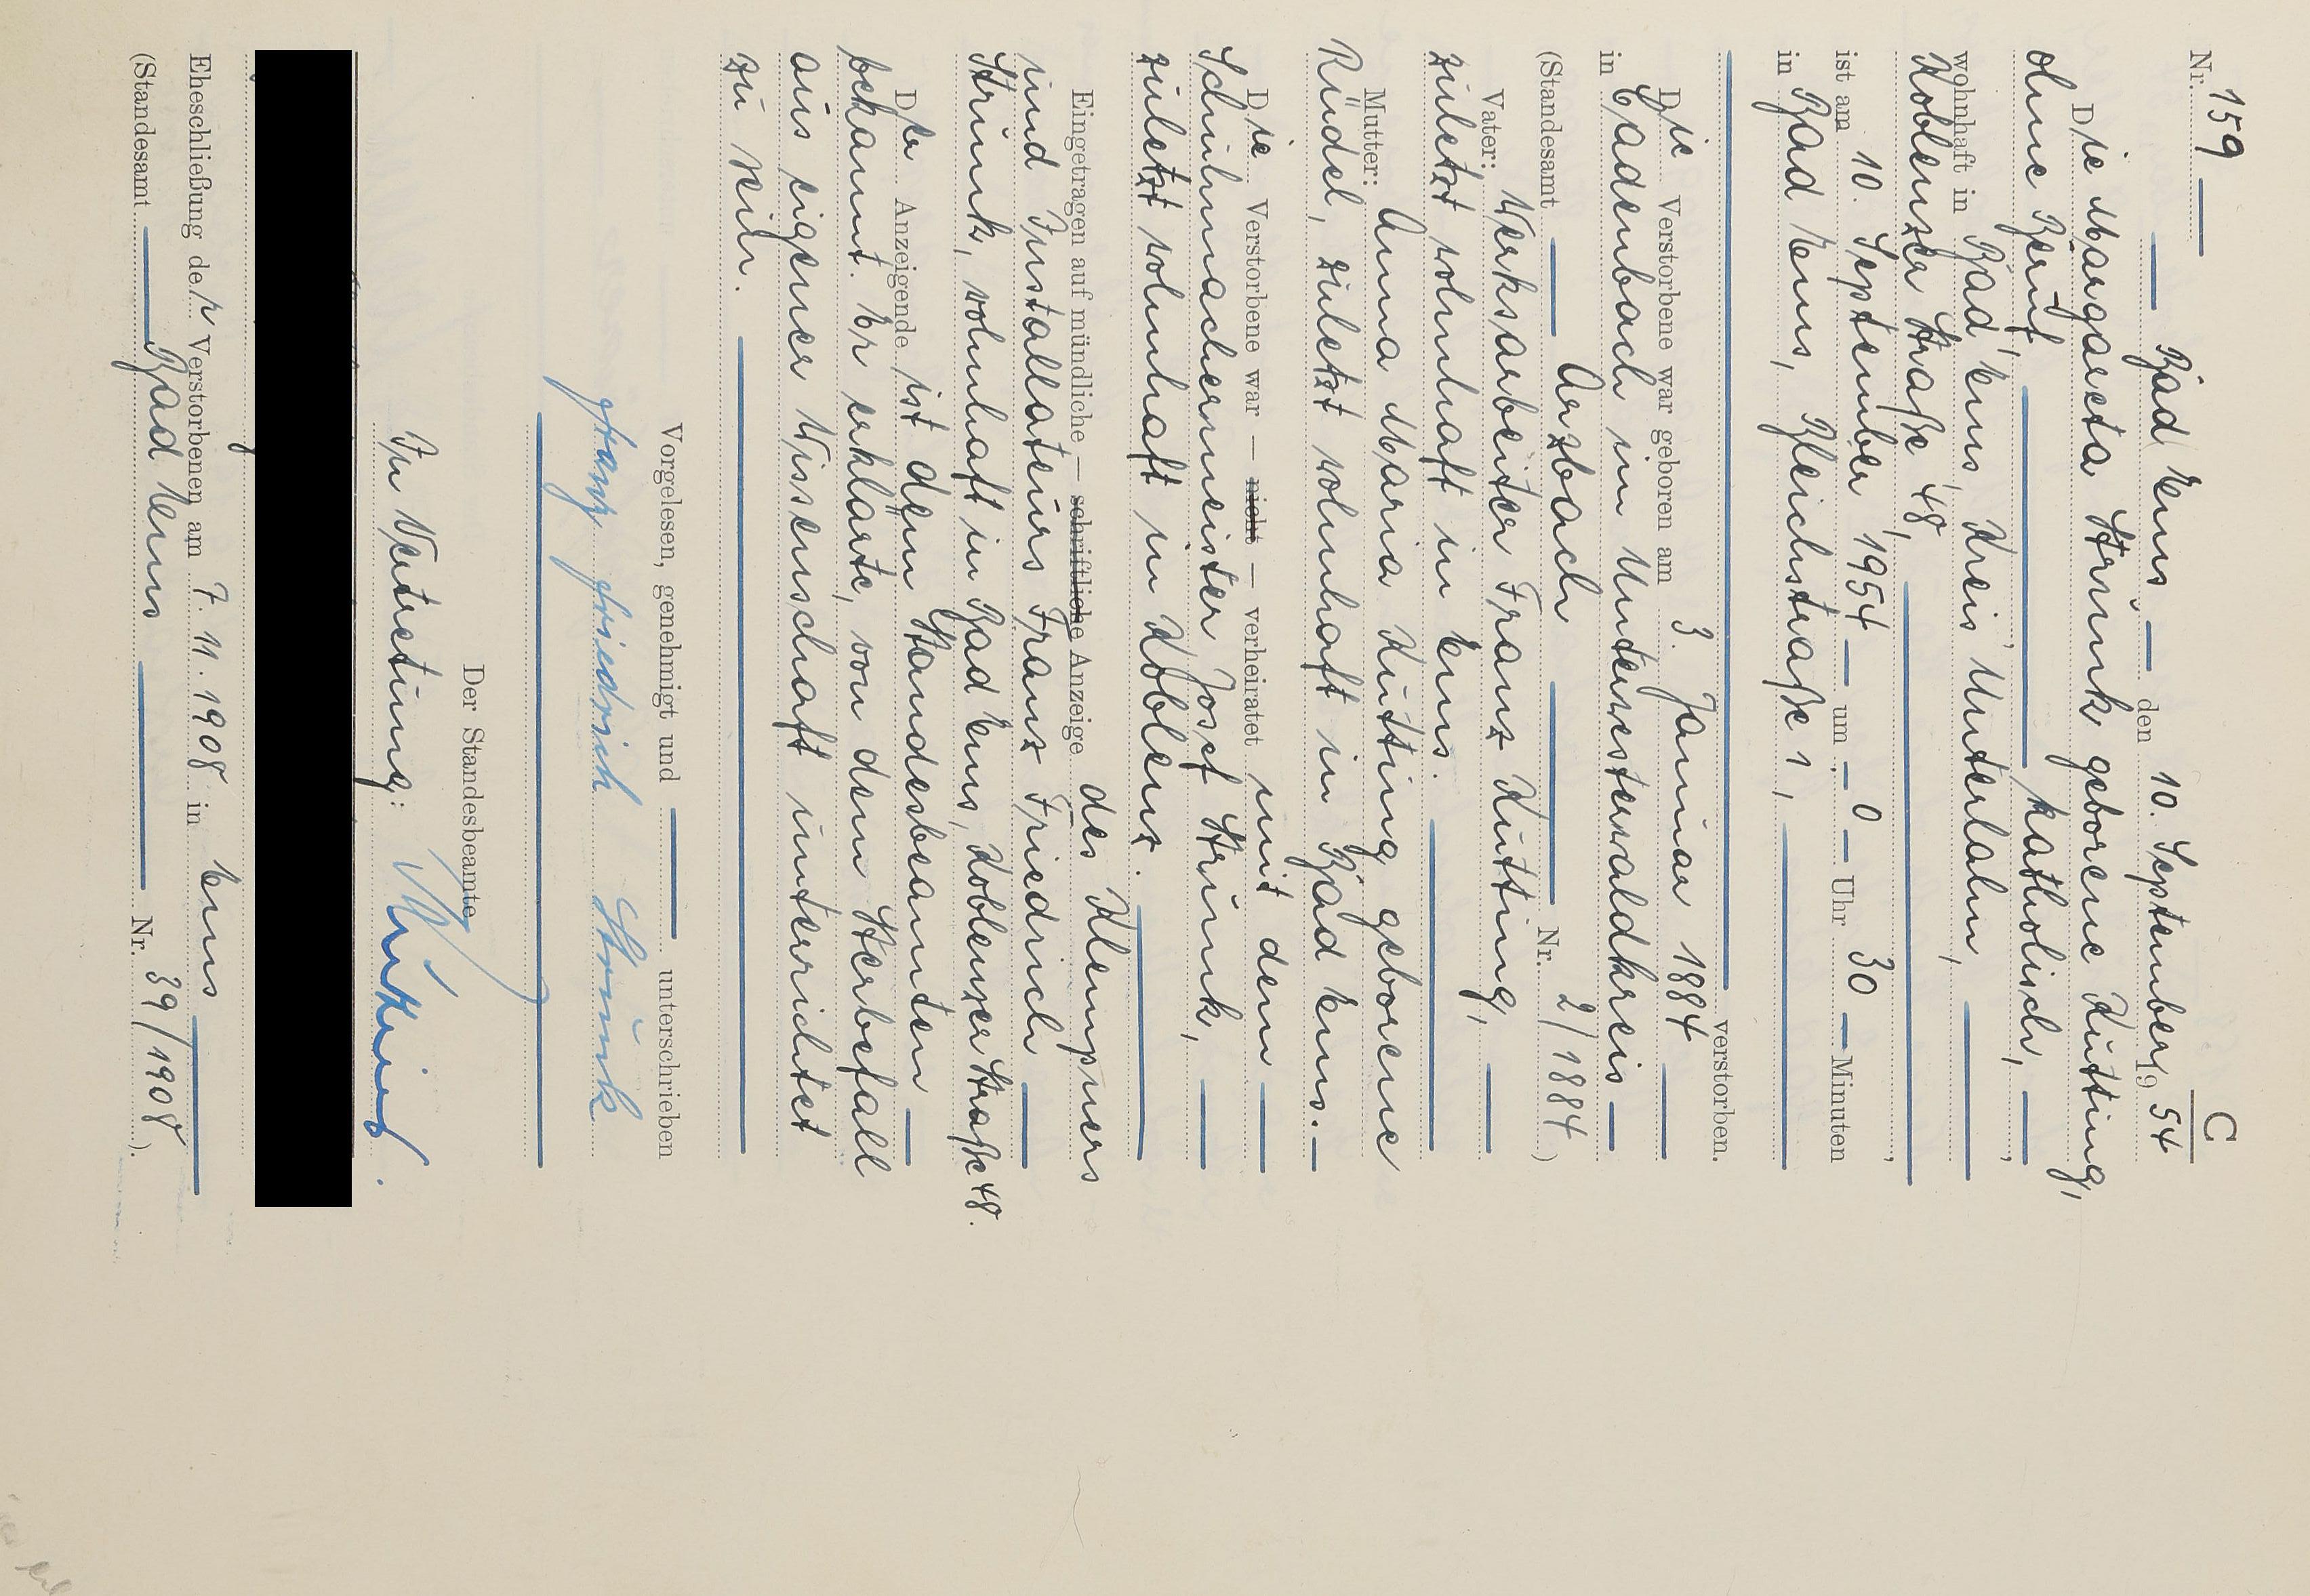 C
Nr. 159
Bad Ems den 10. September 19 54
Die Margareta Strunk geborene Kutting,
ohne Beruf, katholisch,
wohnhaft in Bad Ems, Kreis Unterlahn,
Koblenzer Straße 48,
ist am 10. September 1954 um 0 Uhr 30 Minuten
in Bad Ems, Bleichstraße 1,
verstorben.
Die Verstorbene war geboren am 3. Januar 1884
in Cadenbach im Unterwesterwaldkreis
(Standesamt Arzbach Nr. 2/1884)
Vater: Werksarbeiter Franz Kutting,
zuletzt wohnhaft in Ems.
Mutter: Anna Maria Kutting geborene
Ründel, zuletzt wohnhaft in Bad Ems.
Die Verstorbene war — nicht — verheiratet mit dem
Schuhmachermeister Josef Strunk,
zuletzt wohnhaft in Koblenz.
Eingetragen auf mündliche — schriftliche Anzeige des Klempners
und Installateurs Franz Friedrich
Strunk, wohnhaft in Bad Ems, Koblenzer Straße 48.
Der Anzeigende ist dem Standesbeamten
bekannt. Er erklärte, von dem Sterbefall
aus eigener Wissenschaft unterrichtet
zu sein.
Vorgelesen, genehmigt und unterschrieben
Franz Friedrich Strunk
Der Standesbeamte
In Vertretung:
Eheschließung der Verstorbenen am 7. 11. 1908 in Ems
(Standesamt Bad Ems Nr. 39/1908).